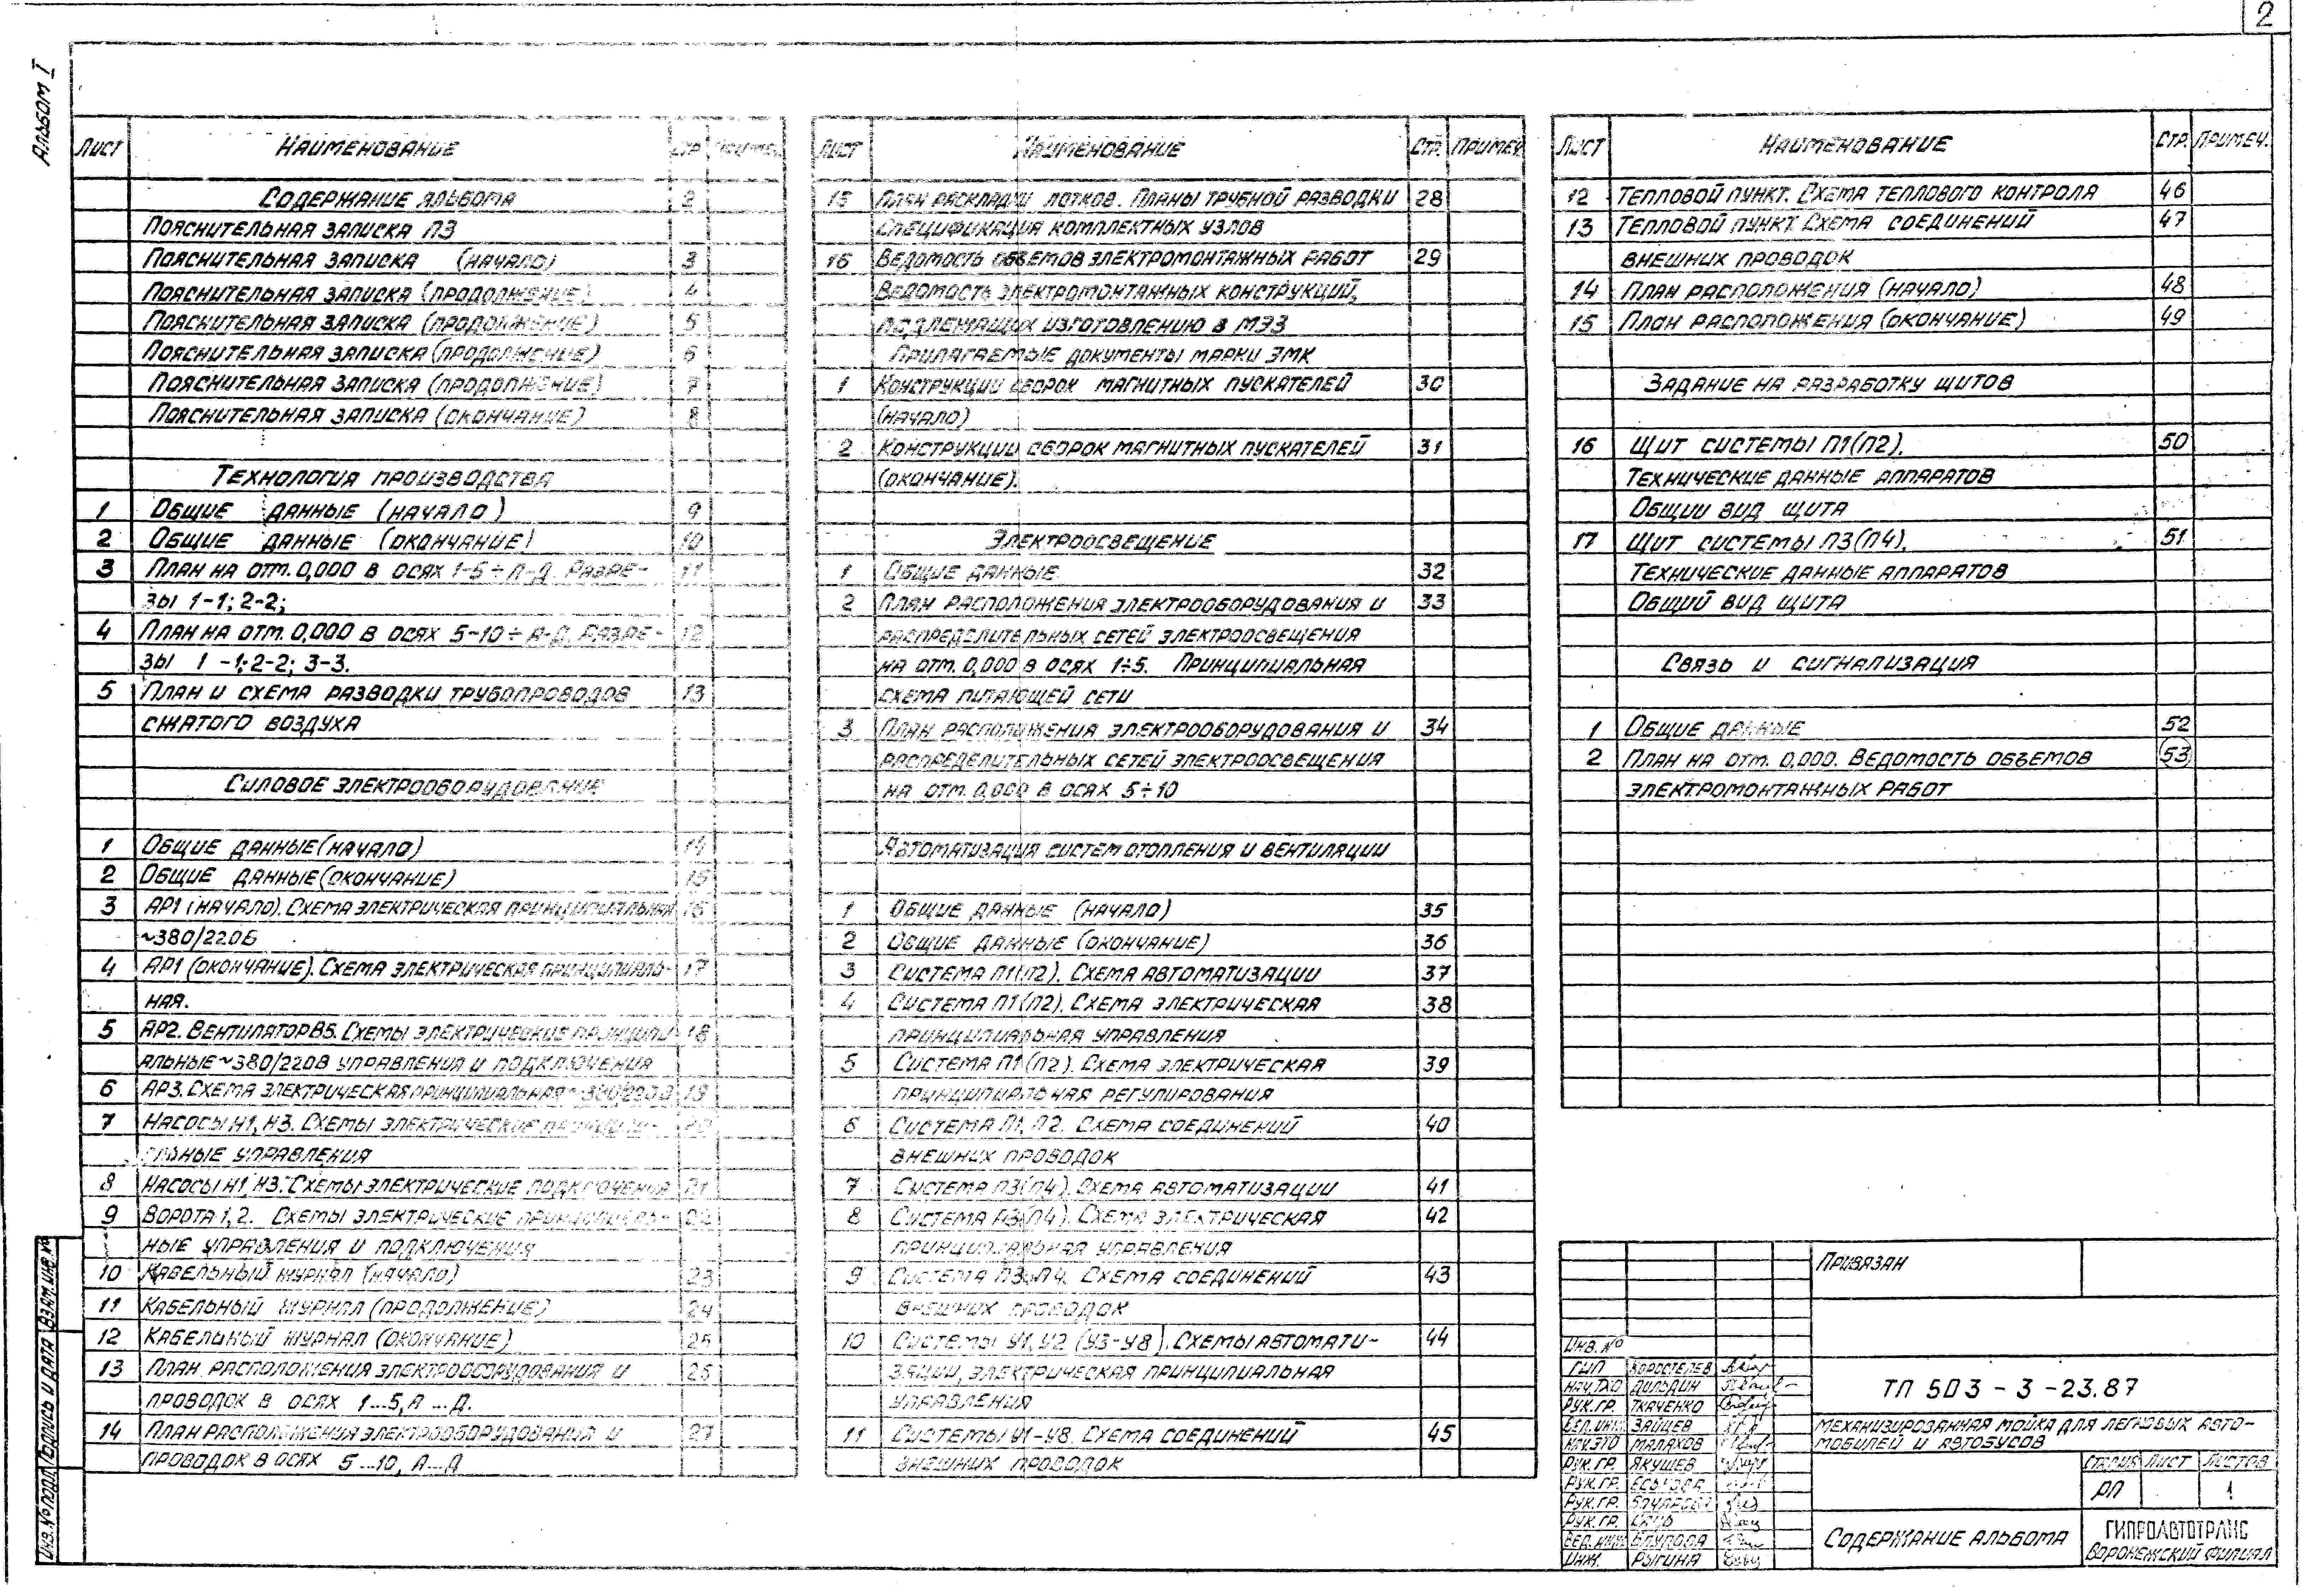 2
Альбом I
Лист Наименование Стр Примеч.
Содержание альбома 2
Пояснительная записка ПЗ
Пояснительная записка (начало) 3
Пояснительная записка (продолжение) 4
Пояснительная записка (продолжение) 5
Пояснительная записка (продолжение) 6
Пояснительная записка (продолжение) 7
Пояснительная записка (окончание) 8
Технология производства
1 Общие данные (начало) 9
2 Общие данные (окончание) 10
3 План на отм. 0,000 в осях 1-5 ÷ А-Д. Разре- 11
зы 1-1; 2-2;
4 План на отм. 0,000 в осях 5-10 ÷ А-Д. Разре- 12
зы 1-1; 2-2; 3-3.
5 План и схема разводки трубопроводов 13
сжатого воздуха
Силовое электрооборудование
1 Общие данные (начало) 14
2 Общие данные (окончание) 15
3 АР1 (начало). Схема электрическая принципиальная 16
~380/220В
4 АР1 (окончание). Схема электрическая принципиаль- 17
ная.
5 АР2. Вентилятор В5. Схемы электрические принципи- 18
альные ~380/220В управления и подключения
6 АР3. Схема электрическая принципиальная ~380/220В 19
7 Насосы Н1, Н3. Схемы электрические принципи- 20
альные управления
8 Насосы Н1, Н3. Схемы электрические подключения 21
9 Ворота 1, 2. Схемы электрические принципиаль- 22
ные управления и подключения
10 Кабельный журнал (начало) 23
11 Кабельный журнал (продолжение) 24
12 Кабельный журнал (окончание) 25
13 План расположения электрооборудования и 26
проводок в осях 1...5, А...Д.
14 План расположения электрооборудования и 27
проводок в осях 5...10, А...Д
Лист Наименование Стр. Примеч.
15 План раскладки лотков. Планы трубной разводки 28
Спецификация комплектных узлов
16 Ведомость объемов электромонтажных работ 29
Ведомость электромонтажных конструкций,
подлежащих изготовлению в МЭЗ
Прилагаемые документы марки ЭМК
1 Конструкции сборок магнитных пускателей 30
(начало)
2 Конструкции сборок магнитных пускателей 31
(окончание).
Электроосвещение
1 Общие данные 32
2 План расположения электрооборудования и 33
распределительных сетей электроосвещения
на отм. 0,000 в осях 1÷5. Принципиальная
схема питающей сети
3 План расположения электрооборудования и 34
распределительных сетей электроосвещения
на отм. 0,000 в осях 5÷10
Автоматизация систем отопления и вентиляции
1 Общие данные (начало) 35
2 Общие данные (окончание) 36
3 Система П1(П2). Схема автоматизации 37
4 Система П1(П2). Схема электрическая 38
принципиальная управления
5 Система П1(П2). Схема электрическая 39
принципиальная регулирования
6 Система П1, П2. Схема соединений 40
внешних проводок
7 Система П3(П4). Схема автоматизации 41
8 Система П3(П4). Схема электрическая 42
принципиальная управления
9 Система П3, П4. Схема соединений 43
внешних проводок
10 Системы У1, У2 (У3-У8). Схемы автомати- 44
зации, электрическая принципиальная
управления
11 Системы У1-У8. Схема соединений 45
внешних проводок
Лист Наименование Стр. Примеч.
12 Тепловой пункт. Схема теплового контроля 46
13 Тепловой пункт. Схема соединений 47
внешних проводок
14 План расположения (начало) 48
15 План расположения (окончание) 49
Задание на разработку щитов
16 Щит системы П1(П2). 50
Технические данные аппаратов
Общий вид щита
17 Щит системы П3(П4). 51
Технические данные аппаратов
Общий вид щита
Связь и сигнализация
1 Общие данные 52
2 План на отм. 0,000. Ведомость объемов 53
электромонтажных работ
Привязан
Инв. №
ГИП Коростелев
Нач. ТХО Дильдин
Рук. гр. Ткаченко
Вед. инж. Зайцев
Нач. ЭТО Малахов
Рук. гр. Якушев
Рук. гр.
Рук. гр.
Рук. гр.
Вед. инж.
Инж. Рыгина
ТП 503-3-23.87
Механизированная мойка для легковых авто-
мобилей и автобусов
Стадия Лист Листов
РП 1
Содержание альбома
Гипроавтотранс
Воронежский филиал
Инв. № подл. Подпись и дата Взам. инв. №